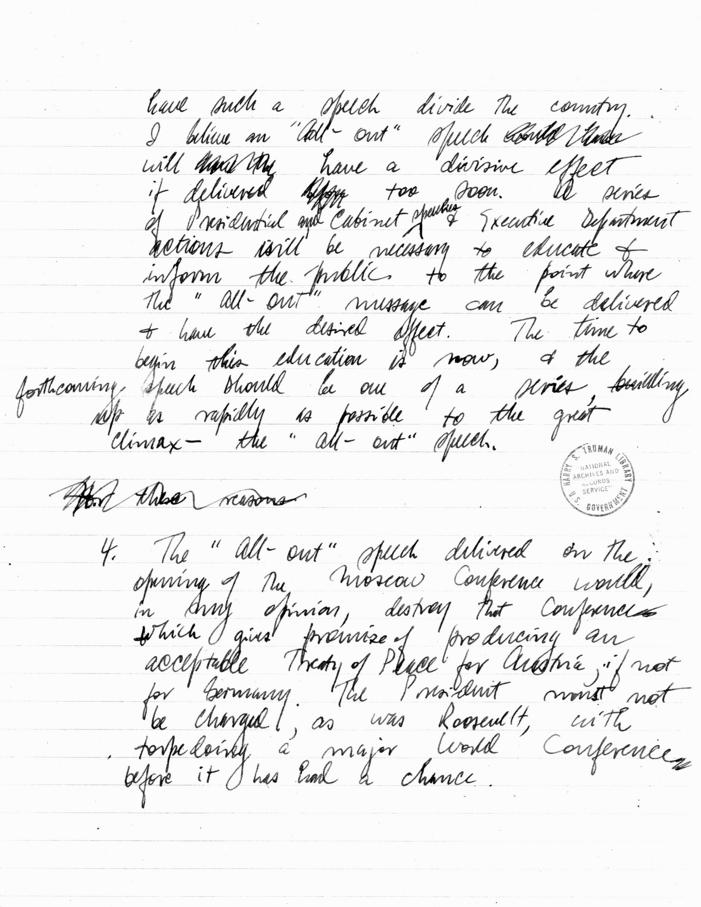 have such a speech divide the country.
I believe an "All-out" speech
will have a divisive effect
if delivered too soon. A series
of Presidential and Cabinet speeches & Executive Department
actions will be necessary to educate &
inform the public to the point where
the "all-out" message can be delivered
& have the desired effect. The time to
begin this education is now, & the
forthcoming speech should be one of a series, building
up as rapidly as possible to the great
climax — the "all-out" speech.
For these reasons
HARRY S. TRUMAN LIBRARY
NATIONAL
ARCHIVES AND
RECORDS
SERVICE
U.S. GOVERNMENT
4. The "All-out" speech delivered on the
opening of the Moscow Conference would,
in my opinion, destroy that Conference
which gives promise of producing an
acceptable Treaty of Peace for Austria, if not
for Germany. The President must not
be charged, as was Roosevelt, with
torpedoing a major World Conference
before it has had a chance.